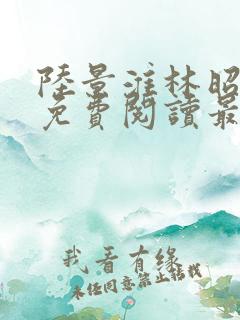 陸景淮林昭
免費閱讀最
我看有緣
未经同意禁止转载